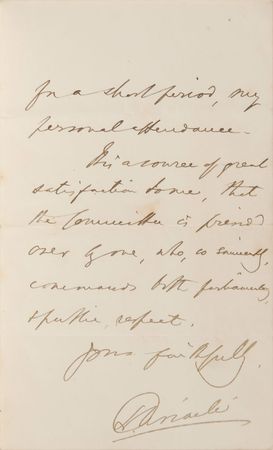 for a short period, my
personal attendance.
It is a source of great
satisfaction to me, that
the Committee is presided
over by one, who, so sincerely,
commands both parliamentary
& public, respect.
Yours faithfully,
B Disraeli